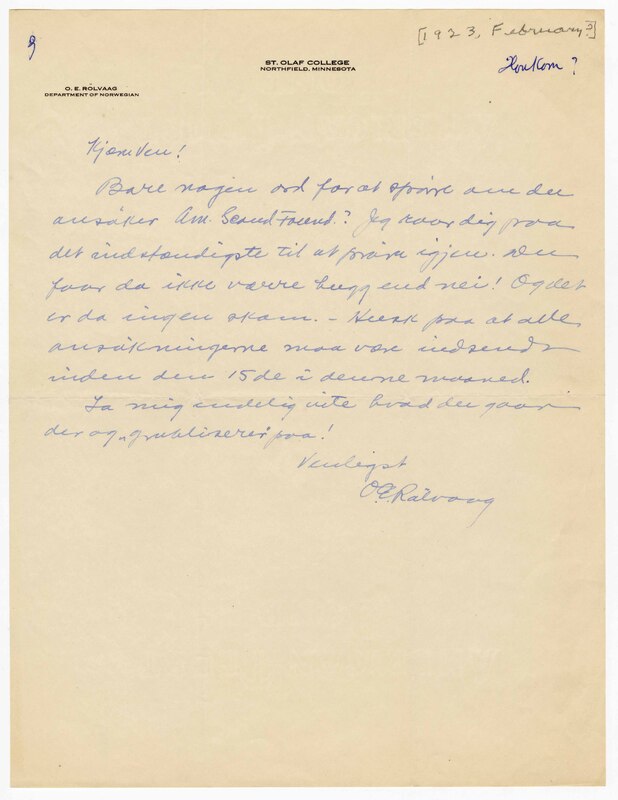 9
[1923, February?]
Houkom?
ST. OLAF COLLEGE
NORTHFIELD, MINNESOTA
O. E. ROLVAAG
DEPARTMENT OF NORWEGIAN
Kjære Ven!
Bare nogen ord for at spørre om du
ansøker Am. Scand Found.? Jeg raar dig paa
det indstændigste til at prøve igjen. Du
faar da ikke værre hugg end nei! Og det
er da ingen skam. – Husk paa at alle
ansøkningerne maa være indsendt
inden den 15de i denne maaned.
La mig endelig vite hvad du gaar
der og „grubliserer" paa!
Venligst
O.E. Rølvaag